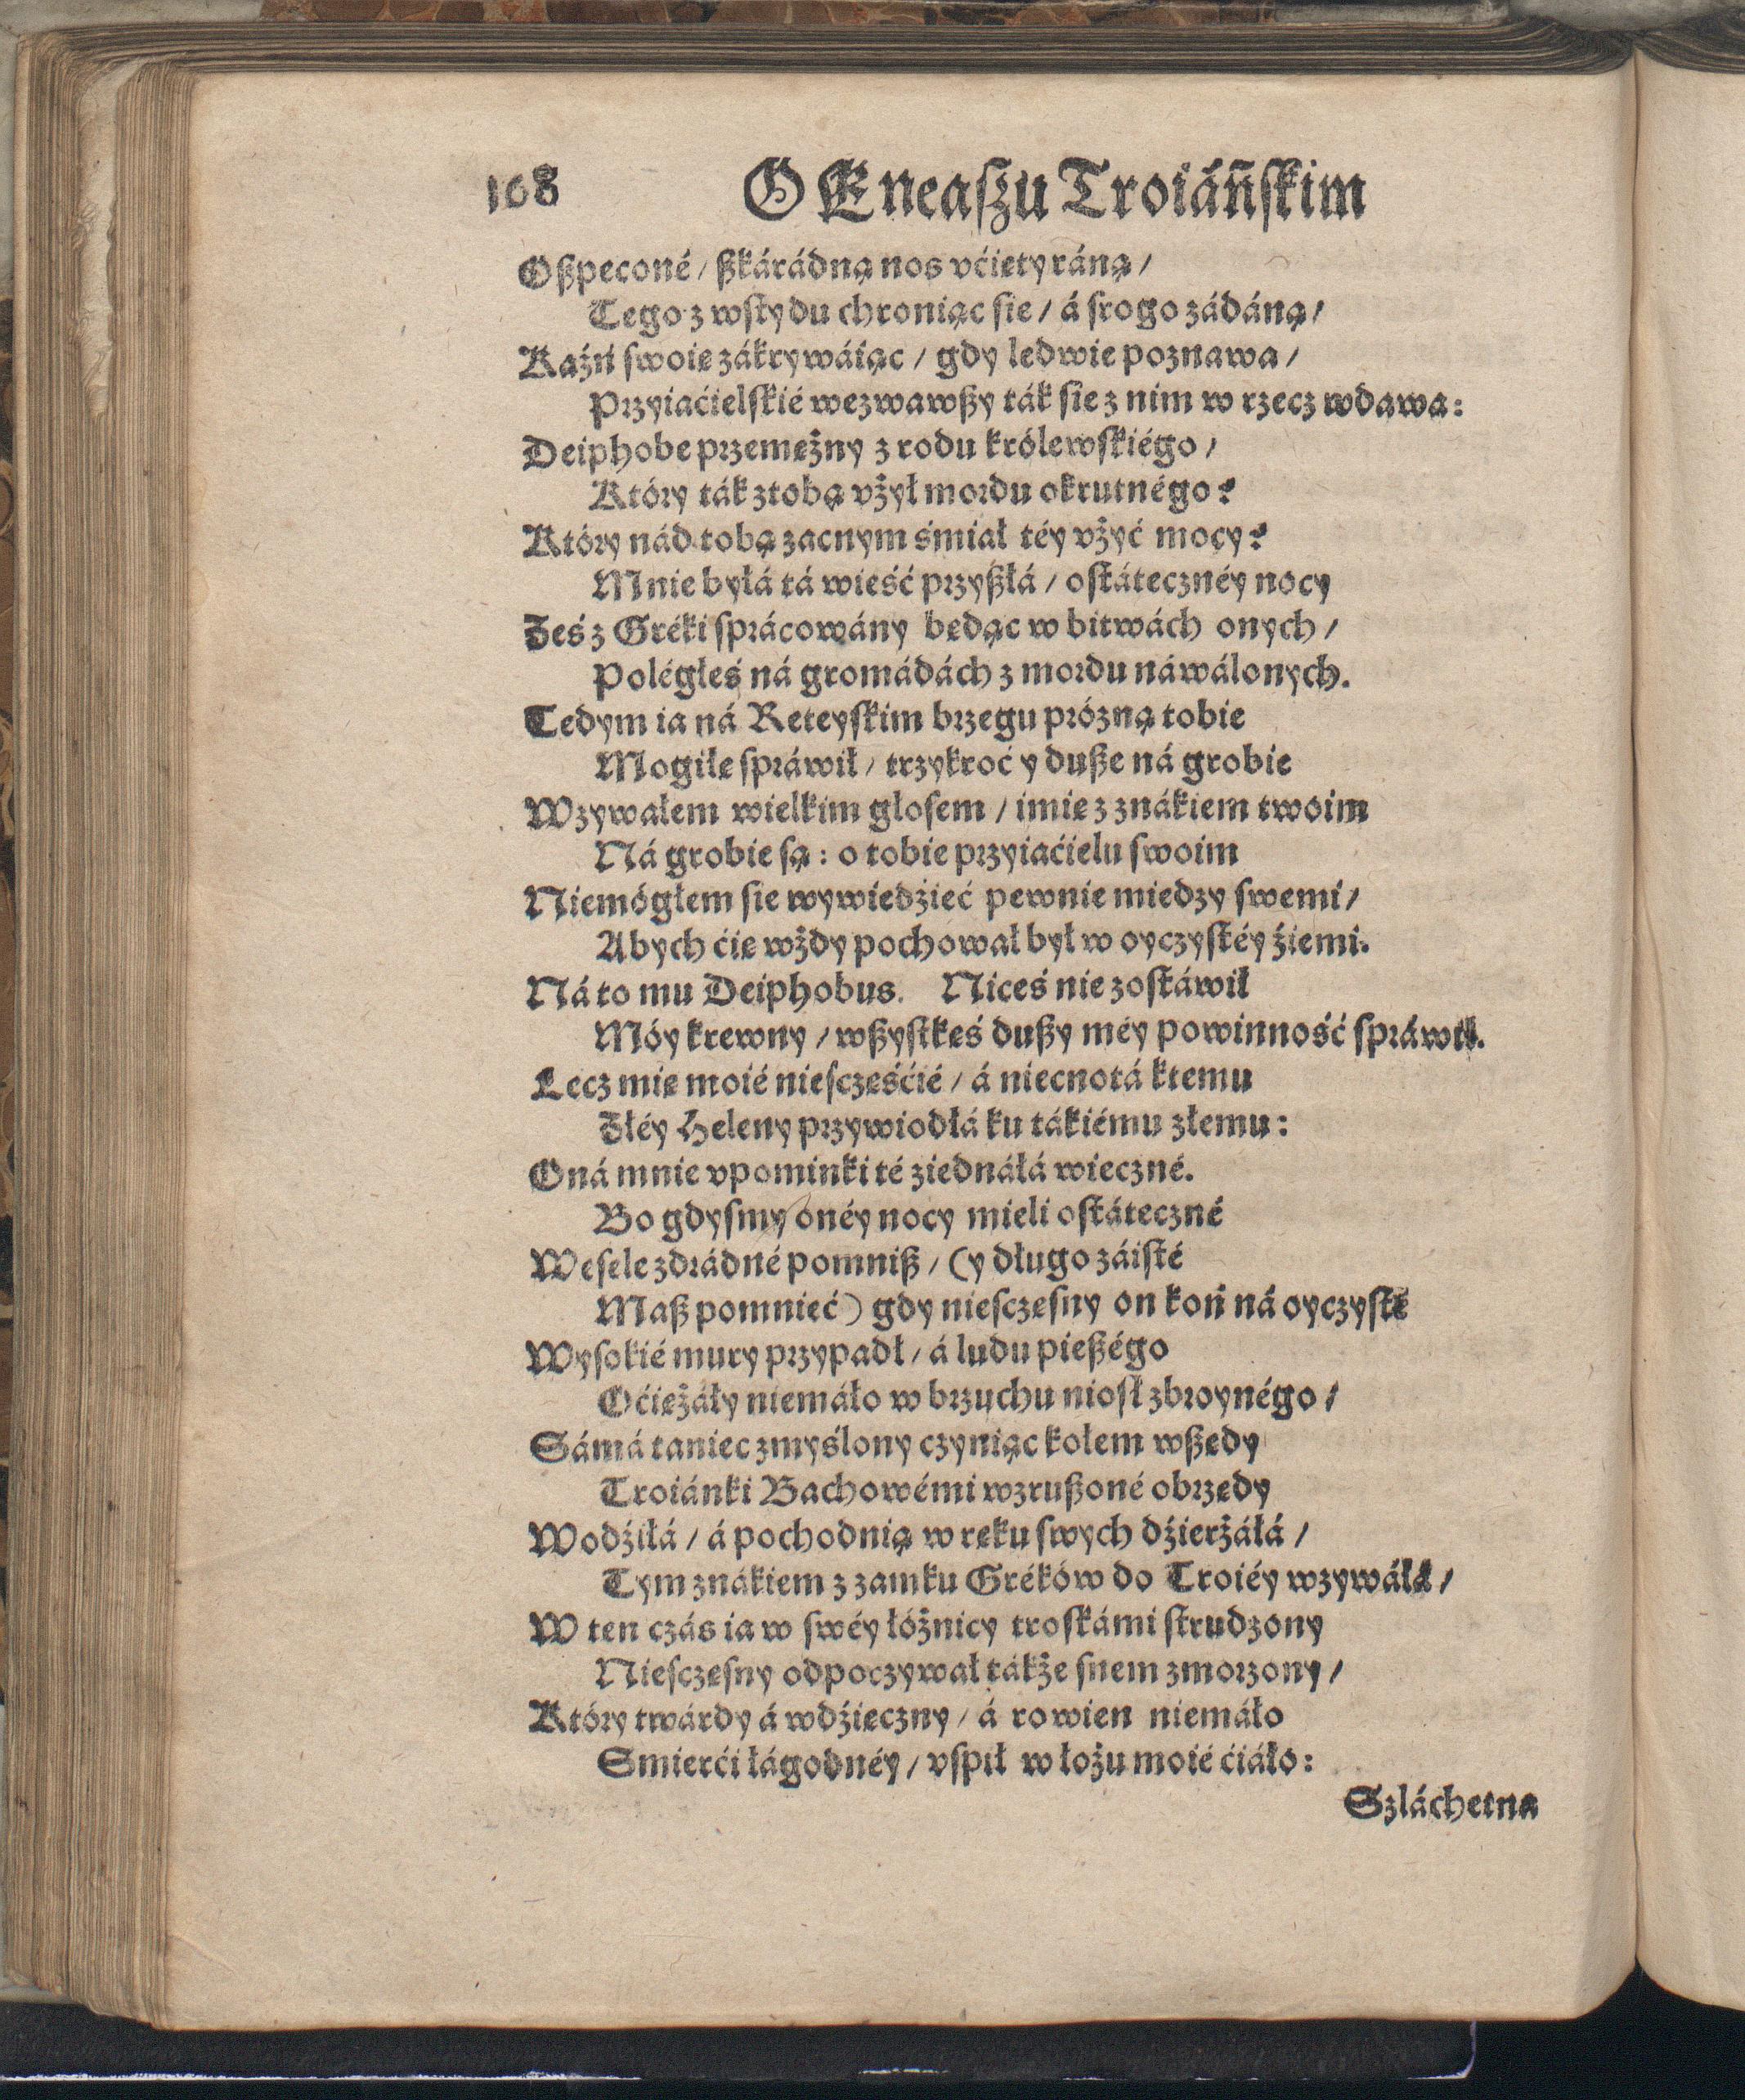 168 O Eneaſzu Troiáńſkim
Oßpeconé / ßkárádną nos vćięty ráną /
Tego z wſtydu chroniąc ſie / á ſrogo zádáną /
Kaźń ſwoię zákrywáiąc / gdy ledwie poznawa /
Przyiaćielſkié wezwawßy ták ſie z nim w rzecz wdawa:
Deiphobe przemężny z rodu królewſkiégo /
Który ták z tobą vżył mordu okrutnégo?
Który nád tobą zacnym śmiał téy vżyć mocy?
Mnie byłá tá wieść przyßłá / oſtátecznéy nocy
Żeś z Gréki ſprácowány będąc w bitwách onych /
Poległeś ná gromádách z mordu náwálonych.
Tedym ia ná Reteyſkim brzegu prózną tobie
Mogiłę ſpráwił / trzykroć y duße ná grobie
Wzywałem wielkim głoſem / imię z znákiem twoim
Ná grobie ſą: o tobie przyiaćielu ſwoim
Niemógłem ſie wywiedźieć pewnie miedzy ſwemi /
Abych ćię wżdy pochował był w oyczyſtéy źiemi.
Ná to mu Deiphobus. Niceś nie zoſtáwił
Móy krewny / wßyſtkęś dußy méy powinność ſpráwił.
Lecz mię moié nieſczęśćié / á niecnotá ktemu
Złéy Heleny przywiodłá ku tákiému złemu:
Oná mnie vpominki té ziednáłá wieczné.
Bo gdyſmy onéy nocy mieli oſtáteczné
Weſele zdrádné pomniß / (y długo záiſté
Maß pomnieć) gdy nieſczęſny on koń ná oyczyſté
Wyſokié mury przypadł / á ludu pießégo
Oćiężáły niemáło w brzuchu nioſł zbroynégo /
Sámá taniec zmyślony czyniąc kołem wßędy
Troiánki Bachowémi wzrußoné obrzędy
Wodźiłá / á pochodnią w ręku ſwych dźierżáłá /
Tym znákiem z zamku Gréków do Troiéy wzywáłá /
W ten czás ia w ſwéy łóżnicy troſkámi ſtrudzony
Nieſczęſny odpoczywał tákże ſnem zmorzony /
Który twárdy á wdźięczny / á rowien niemáło
Smierći łágodnéy / vſpił w łożu moié ćiáło:
Szláchetna